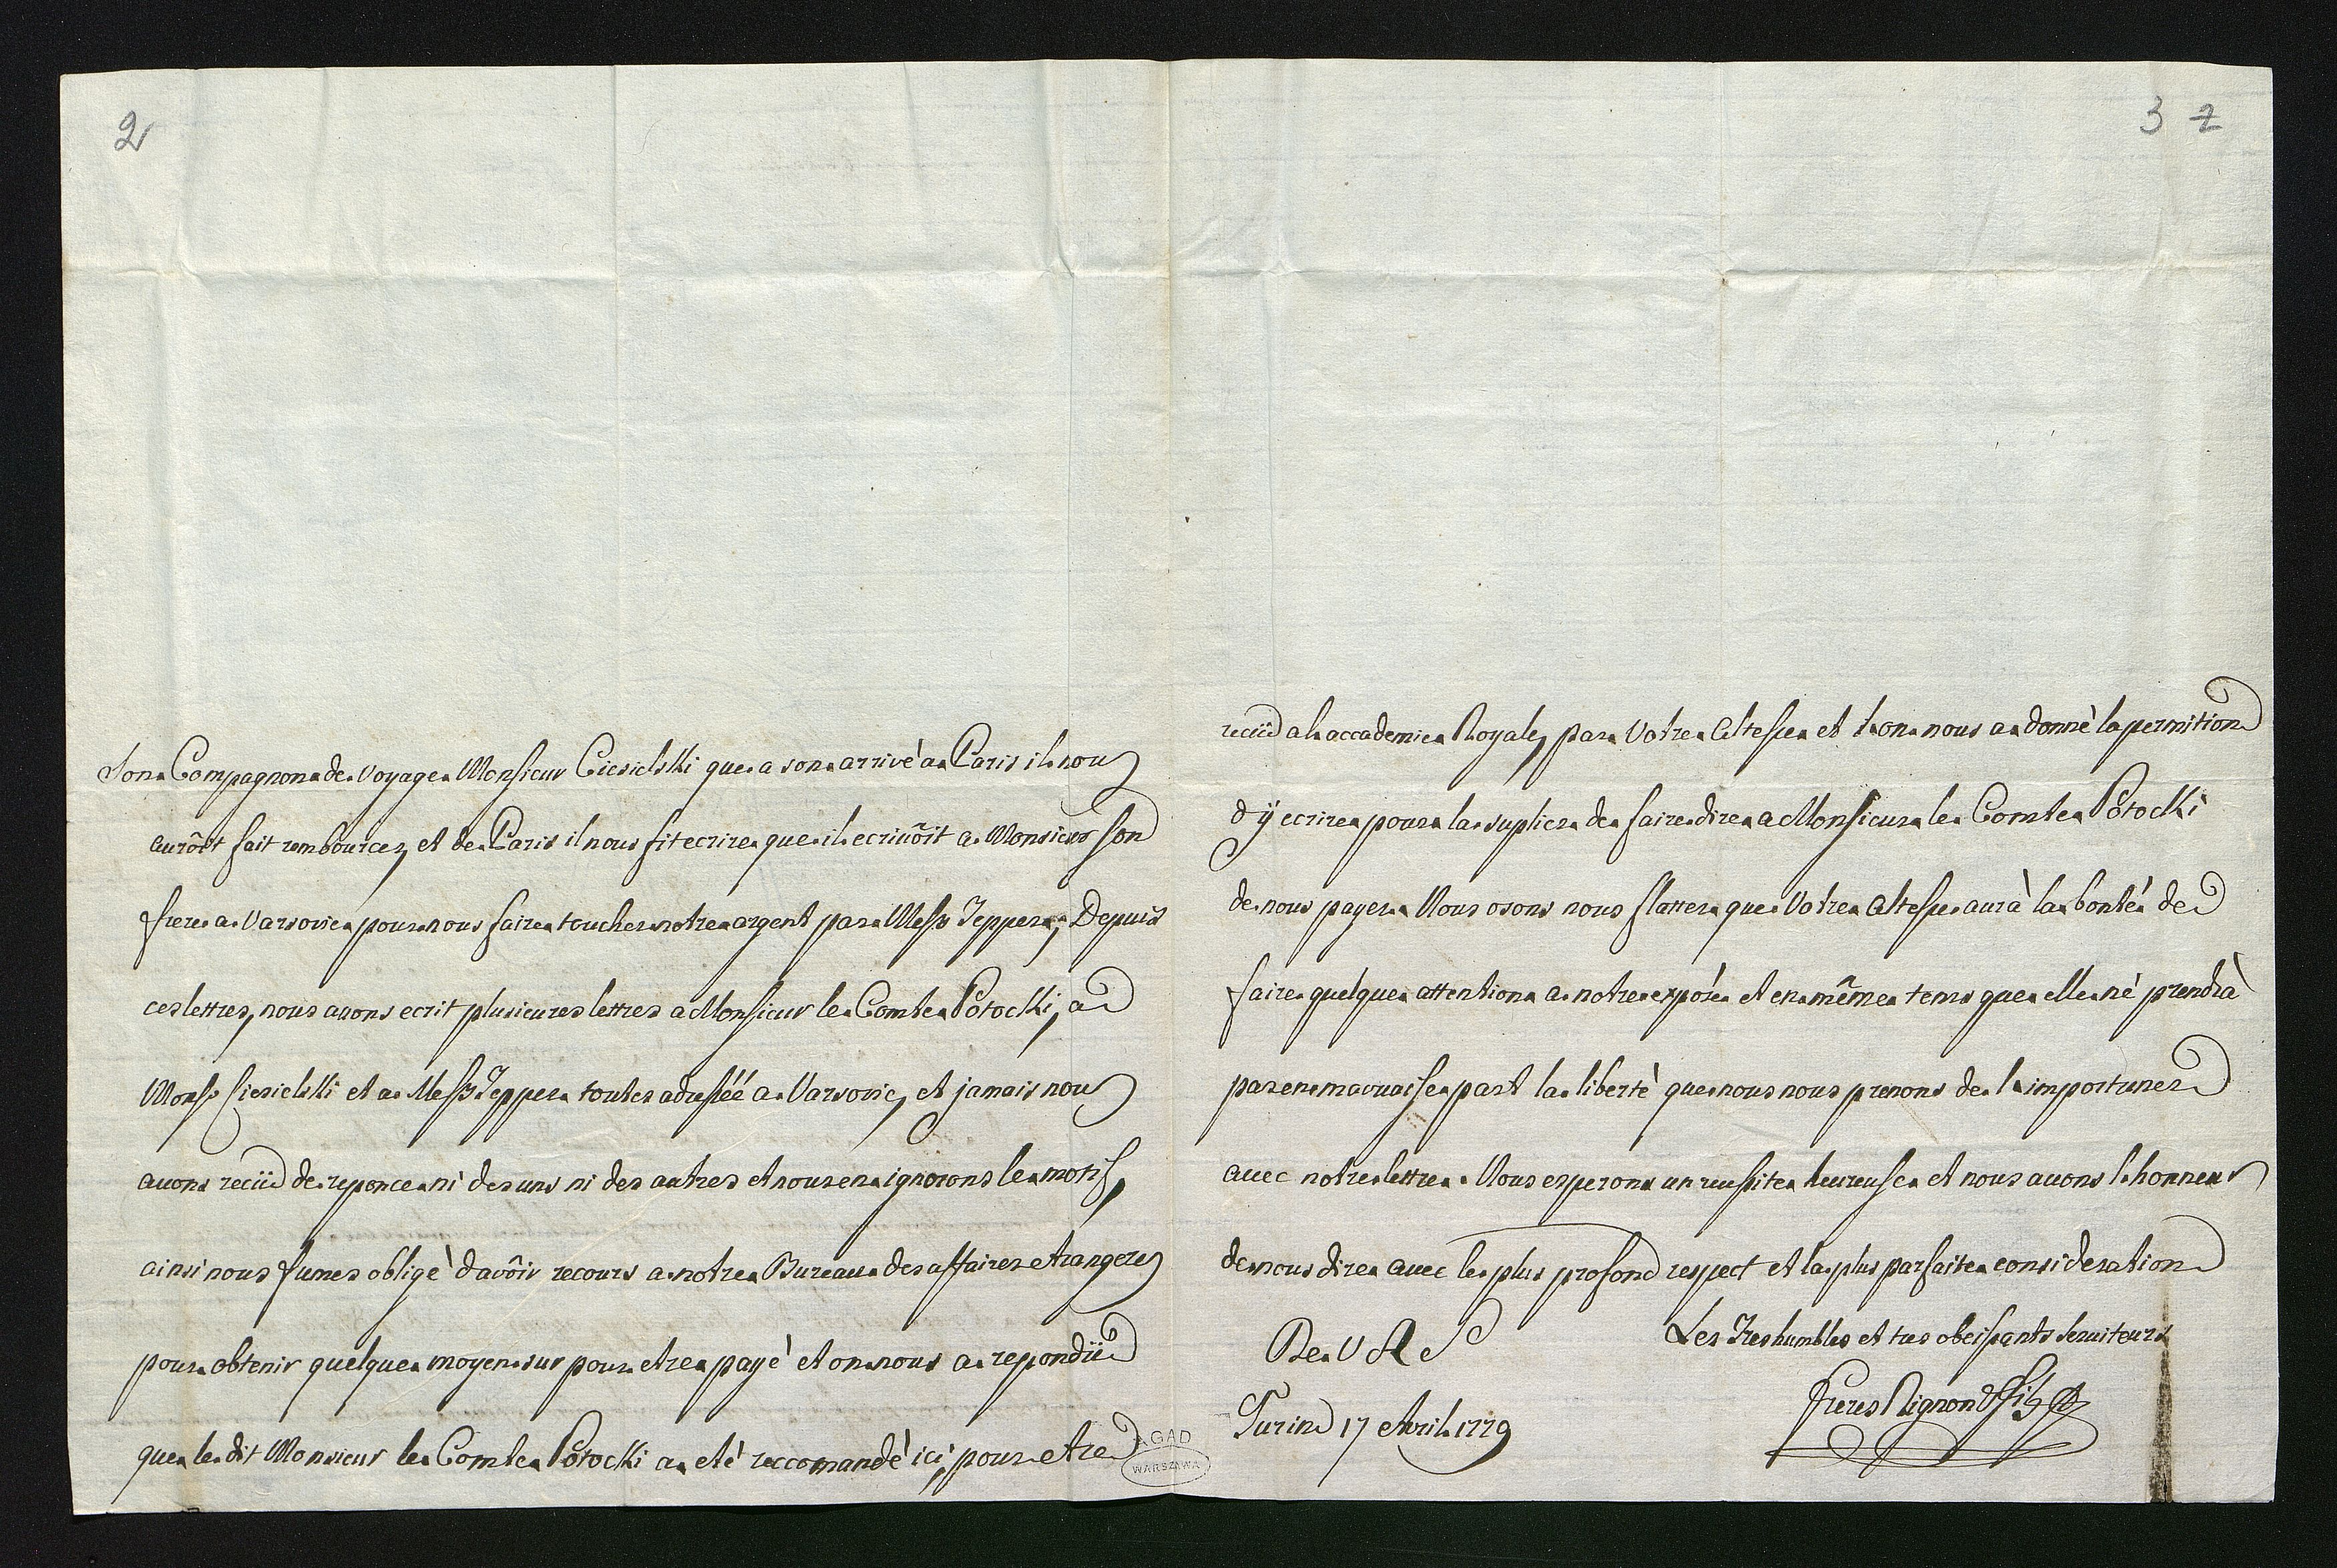 2
Son Compagnon de voyage Monsieur Ciesielski que a son arrivè a Paris il nous
aurôit fait rembourcer, et de Paris il nous fit ecrire que il ecrivôit a Monsieur son
frere a Varsovie pour nous faire toucher notre argent par Mess.rs Tepper; Depuis
ces lettres, nous avons ecrit plusieures lettres a Monsieur le Comte Potocki, a
Mons.r Ciesielski et a Mess.rs Tepper toutes adresséé a Varsovie, et jamais nous
avons reçiü de reponce ni des uns ni des autres et nous en ignorons le motif,
ainsi nous fumes obligè d'avôir recours a notre Bureau des affaires etrangeres
pour obtenir quelque moyen sur pour etre payè et on nous a repondiü
que le dit Monsieur le Comte Potocki a etè reccomandè ici, pour etre
AGAD
WARSZAWA
3 2
reçiü a l'accademie Royale, par Votre Altesse et l'on nous a donnè la permition
d'ÿ ecrire pour la suplier de faire dire a Monsieur le Comte Potocki
de nous payer. Nous osons nous flatter que Votre Altesse aurà la bonté de
faire quelque attention a notre exposé et en même tems que elle nè prendrà
pas en mauvaise part la libertè que nous nous prenons de l'importuner
avec notre lettre. Nous esperons un reussite heureuse et nous avons l'honneur
de nous dire avec le plus profond respect et la plus parfaite consideration
De V A S
Les Tres humbles et tres obeissants serviteurs
Turin 17 Avril 1779
Freres Nignon & Fils